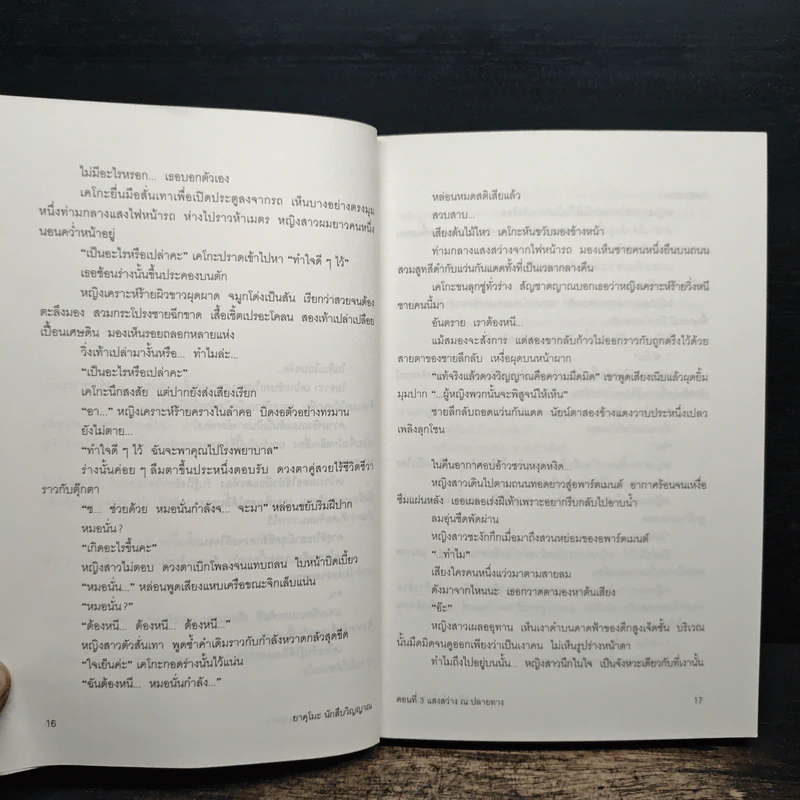 ไม่มีอะไรหรอก... เธอบอกตัวเอง
เคโกะยื่นมือสั่นเทาเพื่อเปิดประตูลงจากรถ เห็นบางอย่างตรงมุม
หนึ่งท่ามกลางแสงไฟหน้ารถ ห่างไปราวห้าเมตร หญิงสาวผมยาวคนหนึ่ง
นอนคว่ำหน้าอยู่
“เป็นอะไรหรือเปล่าคะ” เคโกะปราดเข้าไปหา “ทำใจดี ๆ ไว้”
เธอช้อนร่างนั้นขึ้นประคองบนตัก
หญิงเคราะห์ร้ายผิวขาวผุดผาด จมูกโด่งเป็นสัน เรียกว่าสวยจนต้อง
ตะลึงมอง สวมกระโปรงชายฉีกขาด เสื้อเชิ้ตเปรอะโคลน สองเท้าเปล่าเปลือย
เปื้อนเศษดิน มองเห็นรอยถลอกหลายแห่ง
วิ่งเท้าเปล่ามางั้นหรือ... ทำไมล่ะ...
“เป็นอะไรหรือเปล่าคะ”
เคโกะนึกสงสัย แต่ปากยังส่งเสียงเรียก
“อา...” หญิงเคราะห์ร้ายครางในลำคอ บิดงอตัวอย่างทรมาน
ยังไม่ตาย...
“ทำใจดี ๆ ไว้ ฉันจะพาคุณไปโรงพยาบาล”
ร่างนั้นค่อย ๆ ลืมตาขึ้นประหนึ่งตอบรับ ดวงตาคู่สวยไร้ชีวิตชีวา
ราวกับตุ๊กตา
“ช... ช่วยด้วย หมอนั่นกำลังจ... จะมา” หล่อนขยับริมฝีปาก
หมอนั่น?
“เกิดอะไรขึ้นคะ”
หญิงสาวไม่ตอบ ดวงตาเบิกโพลงจนแทบถลน ใบหน้าบิดเบี้ยว
“หมอนั่น...” หล่อนพูดเสียงแหบเครือขณะจิกเล็บแน่น
“หมอนั่น?”
“ต้องหนี... ต้องหนี... ต้องหนี...”
หญิงสาวตัวสั่นเทา พูดซ้ำคำเดิมราวกับกำลังหวาดกลัวสุดขีด
“ใจเย็นค่ะ” เคโกะกอดร่างนั้นไว้แน่น
“ฉันต้องหนี... หมอนั่นกำลัง...”
16
ยาคุโมะ นักสืบวิญญาณ
หล่อนหมดสติเสียแล้ว
สวบสาบ...
เสียงต้นไม้ไหว เคโกะหันขวับมองข้างหน้า
ท่ามกลางแสงสว่างจากไฟหน้ารถ มองเห็นชายคนหนึ่งยืนบนถนน
สวมสูทสีดำกับแว่นกันแดดทั้งที่เป็นเวลากลางคืน
เคโกะขนลุกซู่ทั่วร่าง สัญชาตญาณบอกเธอว่าหญิงเคราะห์ร้ายวิ่งหนี
ชายคนนี้มา
อันตราย เราต้องหนี...
แม้สมองจะสั่งการ แต่สองขากลับก้าวไม่ออกราวกับถูกตรึงไว้ด้วย
สายตาของชายลึกลับ เหงื่อผุดบนหน้าผาก
“แท้จริงแล้วดวงวิญญาณคือความมืดมิด” เขาพูดเสียงเนิบแล้วผุดยิ้ม
มุมปาก “...ผู้หญิงพวกนั้นจะพิสูจน์ให้เห็น”
ชายลึกลับถอดแว่นกันแดด นัยน์ตาสองข้างแดงวาบประหนึ่งเปลว
เพลิงลุกโชน
ในคืนอากาศอบอ้าวชวนหงุดหงิด...
หญิงสาวเดินไปตามถนนทอดยาวสู่อพาร์ตเมนต์ อากาศร้อนจนเหงื่อ
ซึมแผ่นหลัง เธอเผลอเร่งฝีเท้าเพราะอยากรีบกลับไปอาบน้ำ
ลมอุ่นชืดพัดผ่าน
หญิงสาวชะงักกึกเมื่อมาถึงสวนหย่อมของอพาร์ตเมนต์
“...ทำไม”
เสียงใครคนหนึ่งแว่วมาตามสายลม
ดังมาจากไหนนะ เธอกวาดตามองหาต้นเสียง
“อ๊ะ”
หญิงสาวเผลออุทาน เห็นเงาดำบนดาดฟ้าของตึกสูงเจ็ดชั้น บริเวณ
นั้นมืดมิดจนดูออกเพียงว่าเป็นเงาคน ไม่เห็นรูปร่างหน้าตา
ทำไมถึงไปอยู่บนนั้น... หญิงสาวนึกในใจ เป็นจังหวะเดียวกับที่เงานั้น
ตอนที่ 3 แสงสว่าง ณ ปลายทาง
17